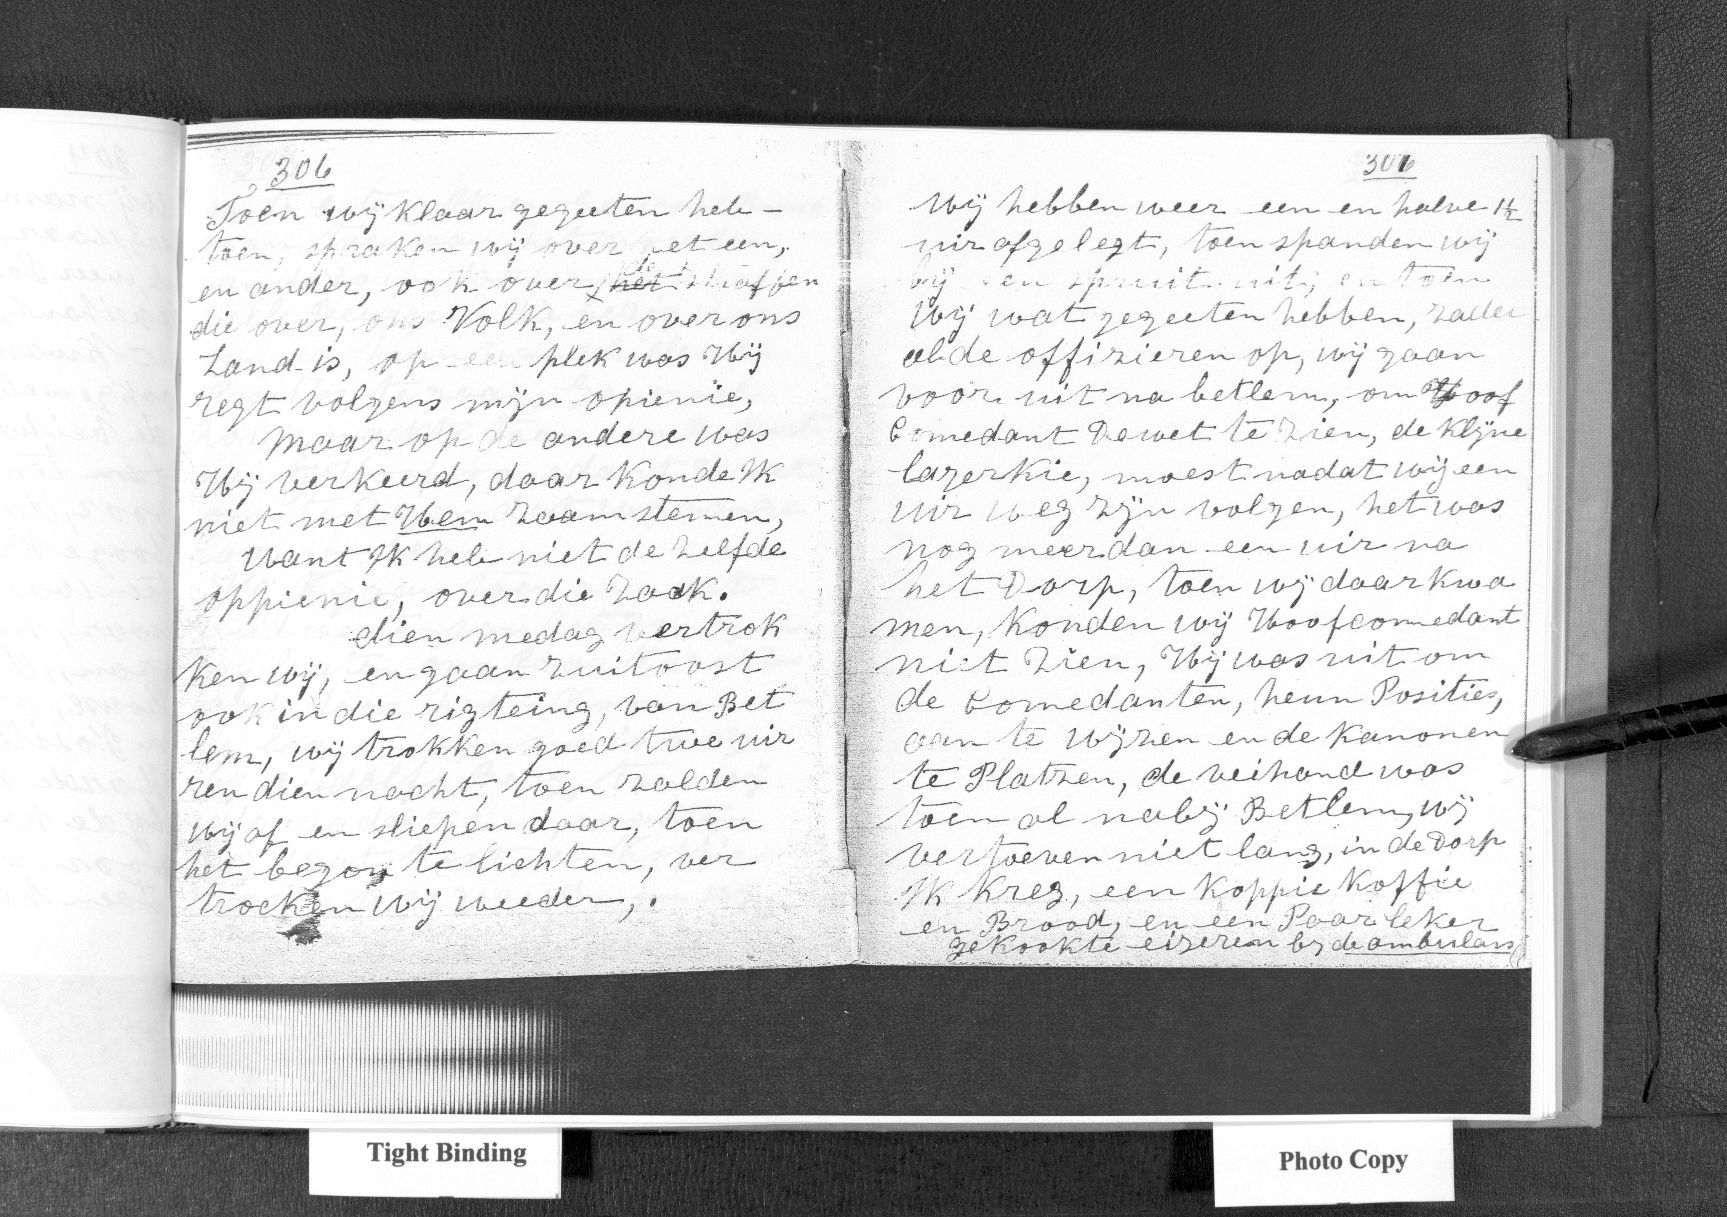 306
Toen wij klaar gegeeten heb-
toen, spraken wij over het een,
en ander, ook over, het straffen
die over, ons Volk, en over ons
Land is, op een plek was Hij
regt volgens mijn opienie,
Maar op de andere was
Hij verkeerd, daar konde Ik
niet met Hem zaam stemen,
Want Ik heb niet de zelfde
oppienie, over die zaak.
dien medag vertrok
ken wij, en gaan zuitoost
ook in die rigteing, van Bet
lem, wij trokken goed twe uir
ren dien nacht, toen zalden
wij af en sliepen daar, toen
het begon te lichten, ver
trocken wij weeder,.
307
Wij hebben weer een en halve 1½
uir afgelegt, toen spanden wij
bij een spruit uit, en toen
Wij wat gegeeten hebben, zalde
al de offizieren op, wij gaan
voor uit na betlem, om Hoof
Comedant Dewet te zien, de klijne
lazerkie, moest nadat wij een
uir weg zijn volgen, het was
nog meer dan een uir na
het Dorp, toen wij daar kwa
men, konden wij Hoofcomedant
niet zien, Hij was uit om
de Comedanten, heun Posities,
aan te wijzen en de kanonen
te Platzen, de veihand was
toen al nabij Betlem, wij
vertoeven niet lang, in de Dorp
Ik kreg, een koppie koffie
en Brood, en een Paar leker
gekookte eizeren by de ambulans
Tight Binding
Photo Copy